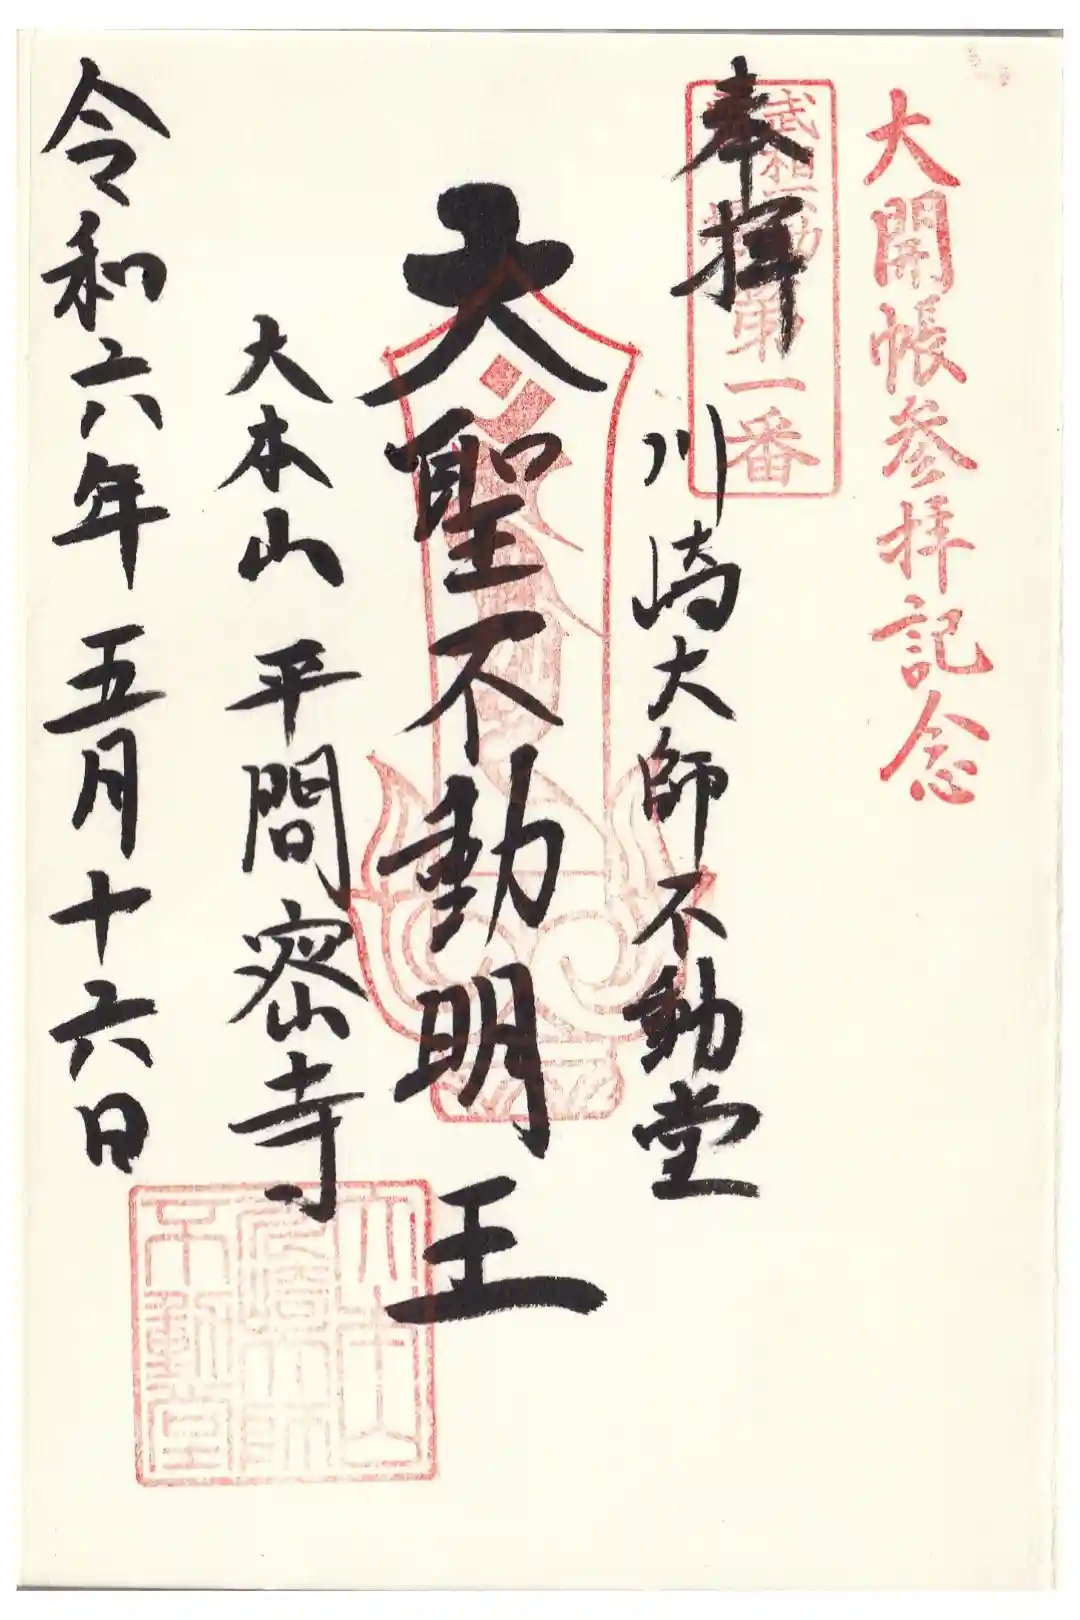 大開帳参拝記念
武相不動 第一番
奉拝
川崎大師不動堂
大聖不動明王
大本山 平間寺
令和六年 五月十六日
大本山
川崎大師
不動堂